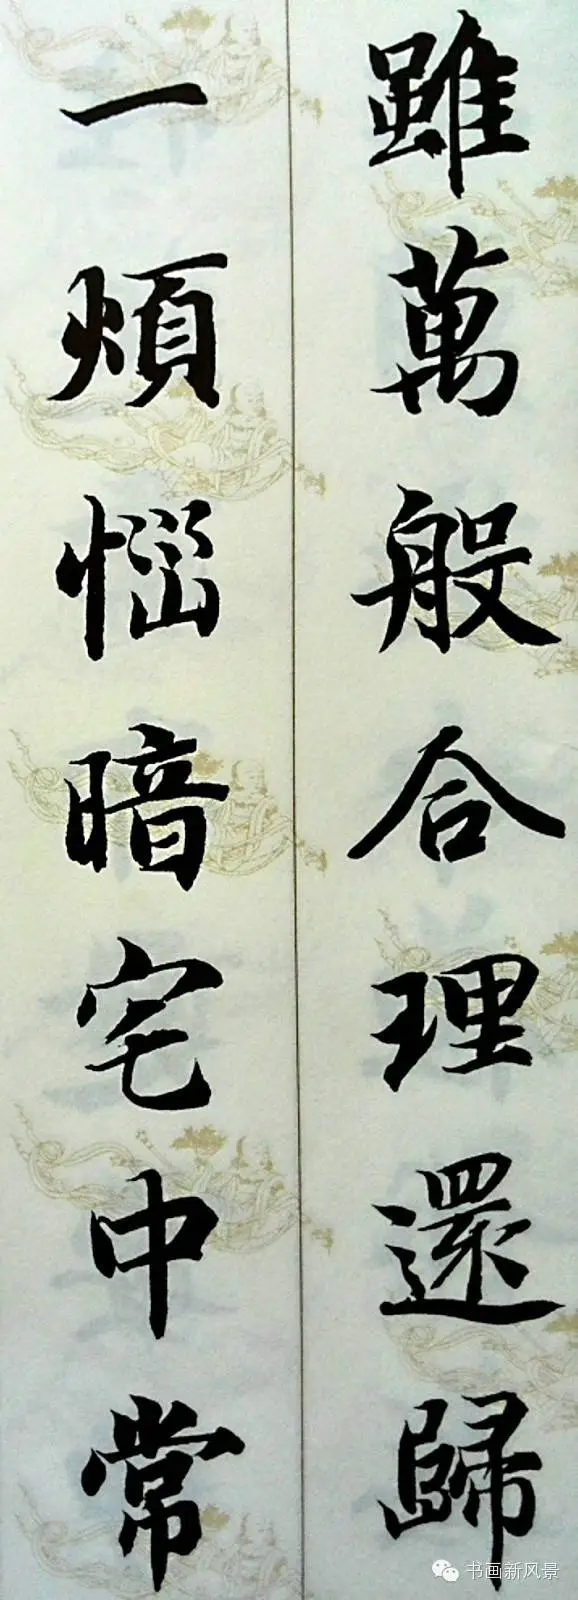 雖萬般合理還歸
一煩惱暗宅中常
书画新风景